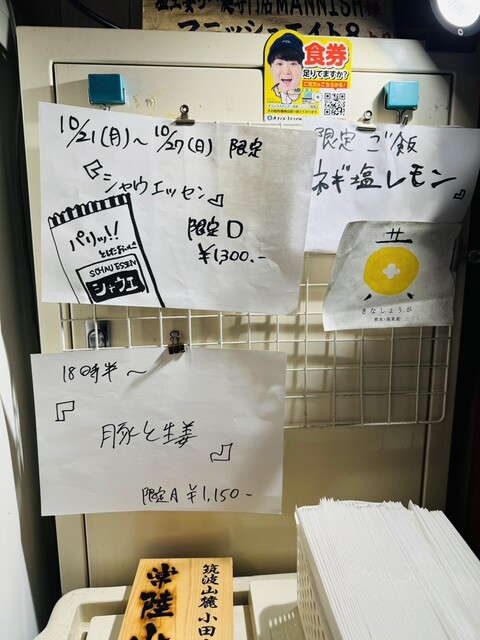 塩生姜らー麺専門店MANNISH様
マニッシュエイト8
食券
足りてますか?
ご注文はこちらから!
10/21(月)～10/27(日) 限定
『シャウエッセン』
パリッ!!
SCHAU ESSEN
シャウエ
限定D
¥1,300.-
限定 ご飯
ネギ塩レモン』
黄
きなしょうが
18時半～
『豚と生姜』
限定A ¥1,150-
常陸
筑波山麓 小田